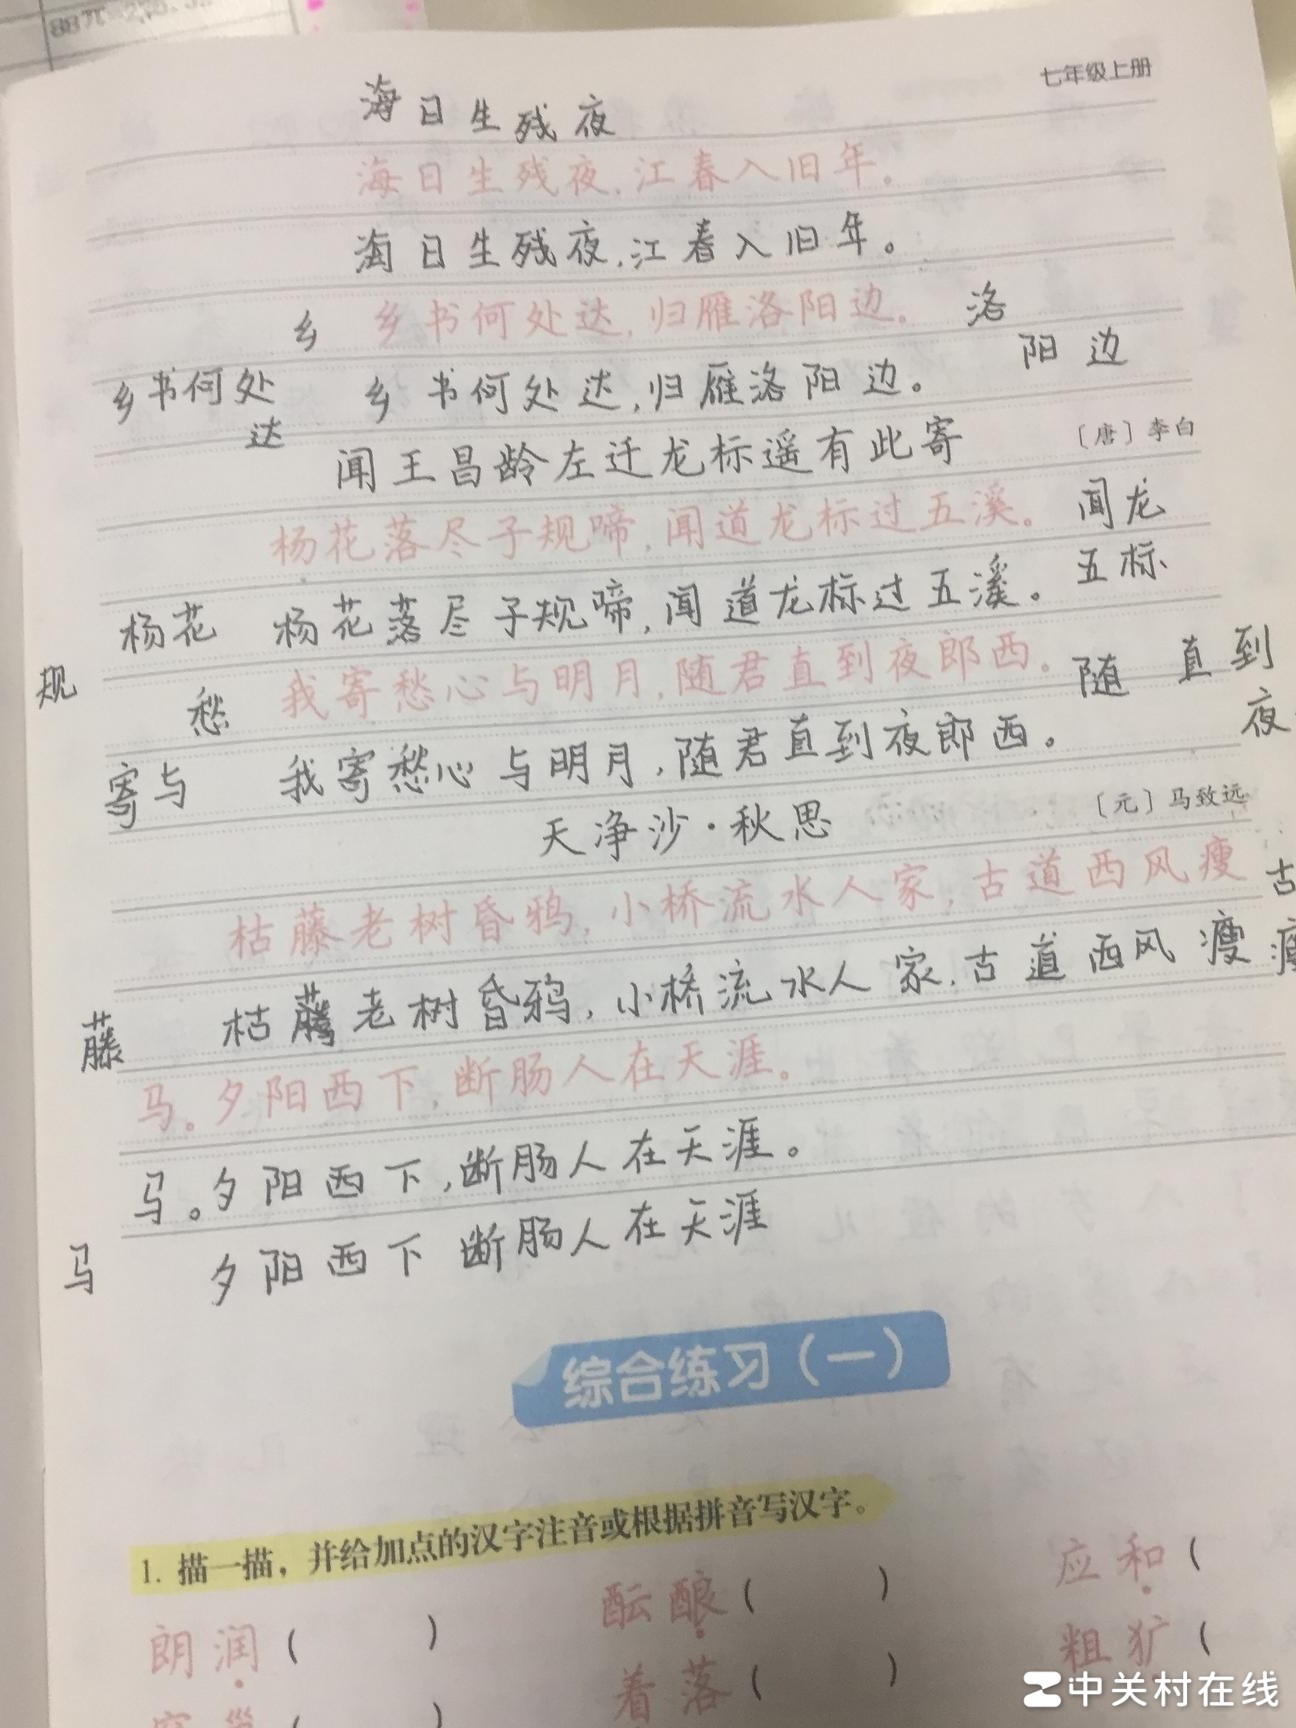 88π
七年级上册
海日生残夜
海日生残夜,江春入旧年。
海日生残夜,江春入旧年。
乡 乡书何处达,归雁洛阳边。 洛
阳边
乡书何处 乡书何处达,归雁洛阳边。
达
闻王昌龄左迁龙标遥有此寄 〔唐〕李白
杨花落尽子规啼,闻道龙标过五溪。 闻龙
杨花 杨花落尽子规啼,闻道龙标过五溪。 五标
规 愁 我寄愁心与明月,随君直到夜郎西。 随 直到
夜
寄与 我寄愁心与明月,随君直到夜郎西。
天净沙·秋思 〔元〕马致远
枯藤老树昏鸦,小桥流水人家,古道西风瘦 古
藤 枯藤老树昏鸦,小桥流水人家,古道西风瘦
马。夕阳西下,断肠人在天涯。
马。夕阳西下,断肠人在天涯。
马 夕阳西下 断肠人在天涯
综合练习(一)
1. 描一描,并给加点的汉字注音或根据拼音写汉字。
朗润( ) 酝酿( ) 应和(
着落( ) 粗犷(
中关村在线